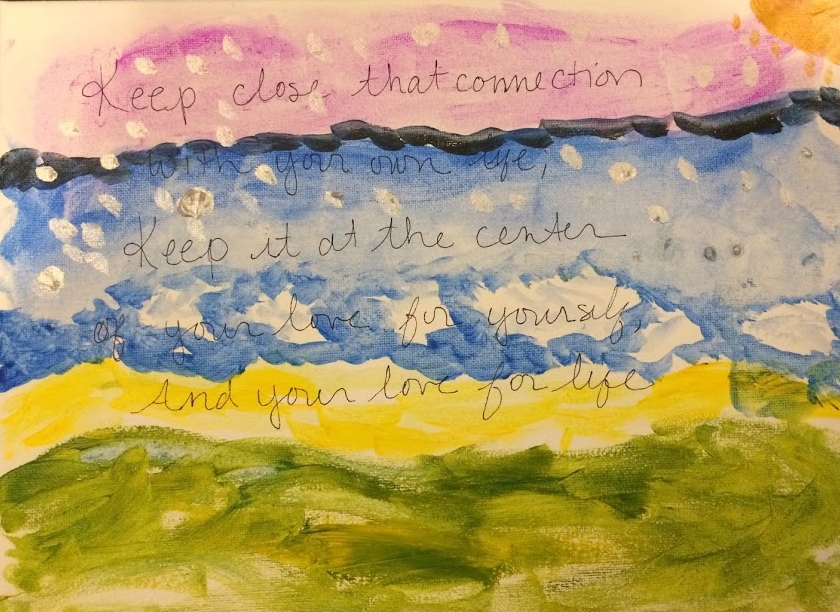 Keep close that connection
with your own life,
Keep it at the center
of your love for yourself,
And your love for life